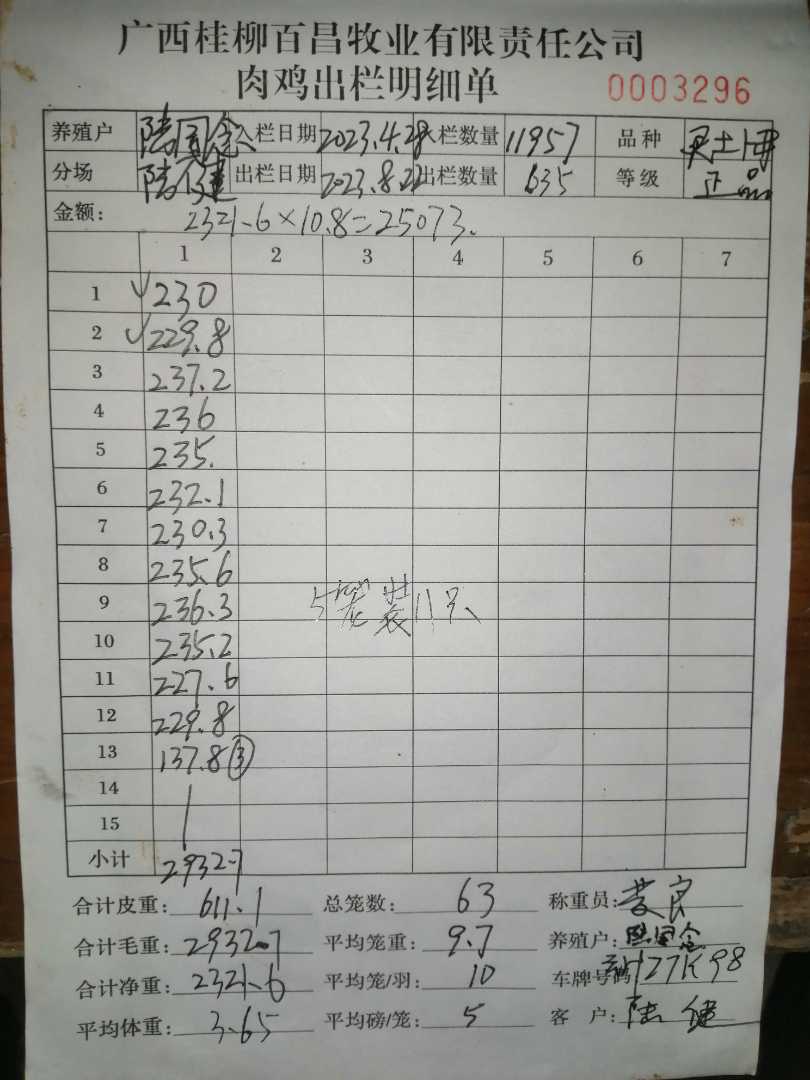 广西桂柳百昌牧业有限责任公司
肉鸡出栏明细单 0003296
养殖户 陆国念 入栏日期 2023.4.28 入栏数量 11957 品种 灵土博
分场 陆健 出栏日期 2023.8.22 出栏数量 635 等级 正品
金额: 2321.6×10.8=25073.
1 2 3 4 5 6 7
1 √230
2 √229.8
3 237.2
4 236
5 235.
6 232.1
7 230.3
8 235.6
9 236.3 5笼装11只
10 235.2
11 227.6
12 229.8
13 137.8③
14
15
小计 2932.7
合计皮重: 611.1 总笼数: 63 称重员: 良
合计毛重: 2932.7 平均笼重: 9.7 养殖户: 陆国念
合计净重: 2321.6 平均笼/羽: 10 车牌号码 27K98
平均体重: 3.65 平均磅/笼: 5 客 户: 陆健